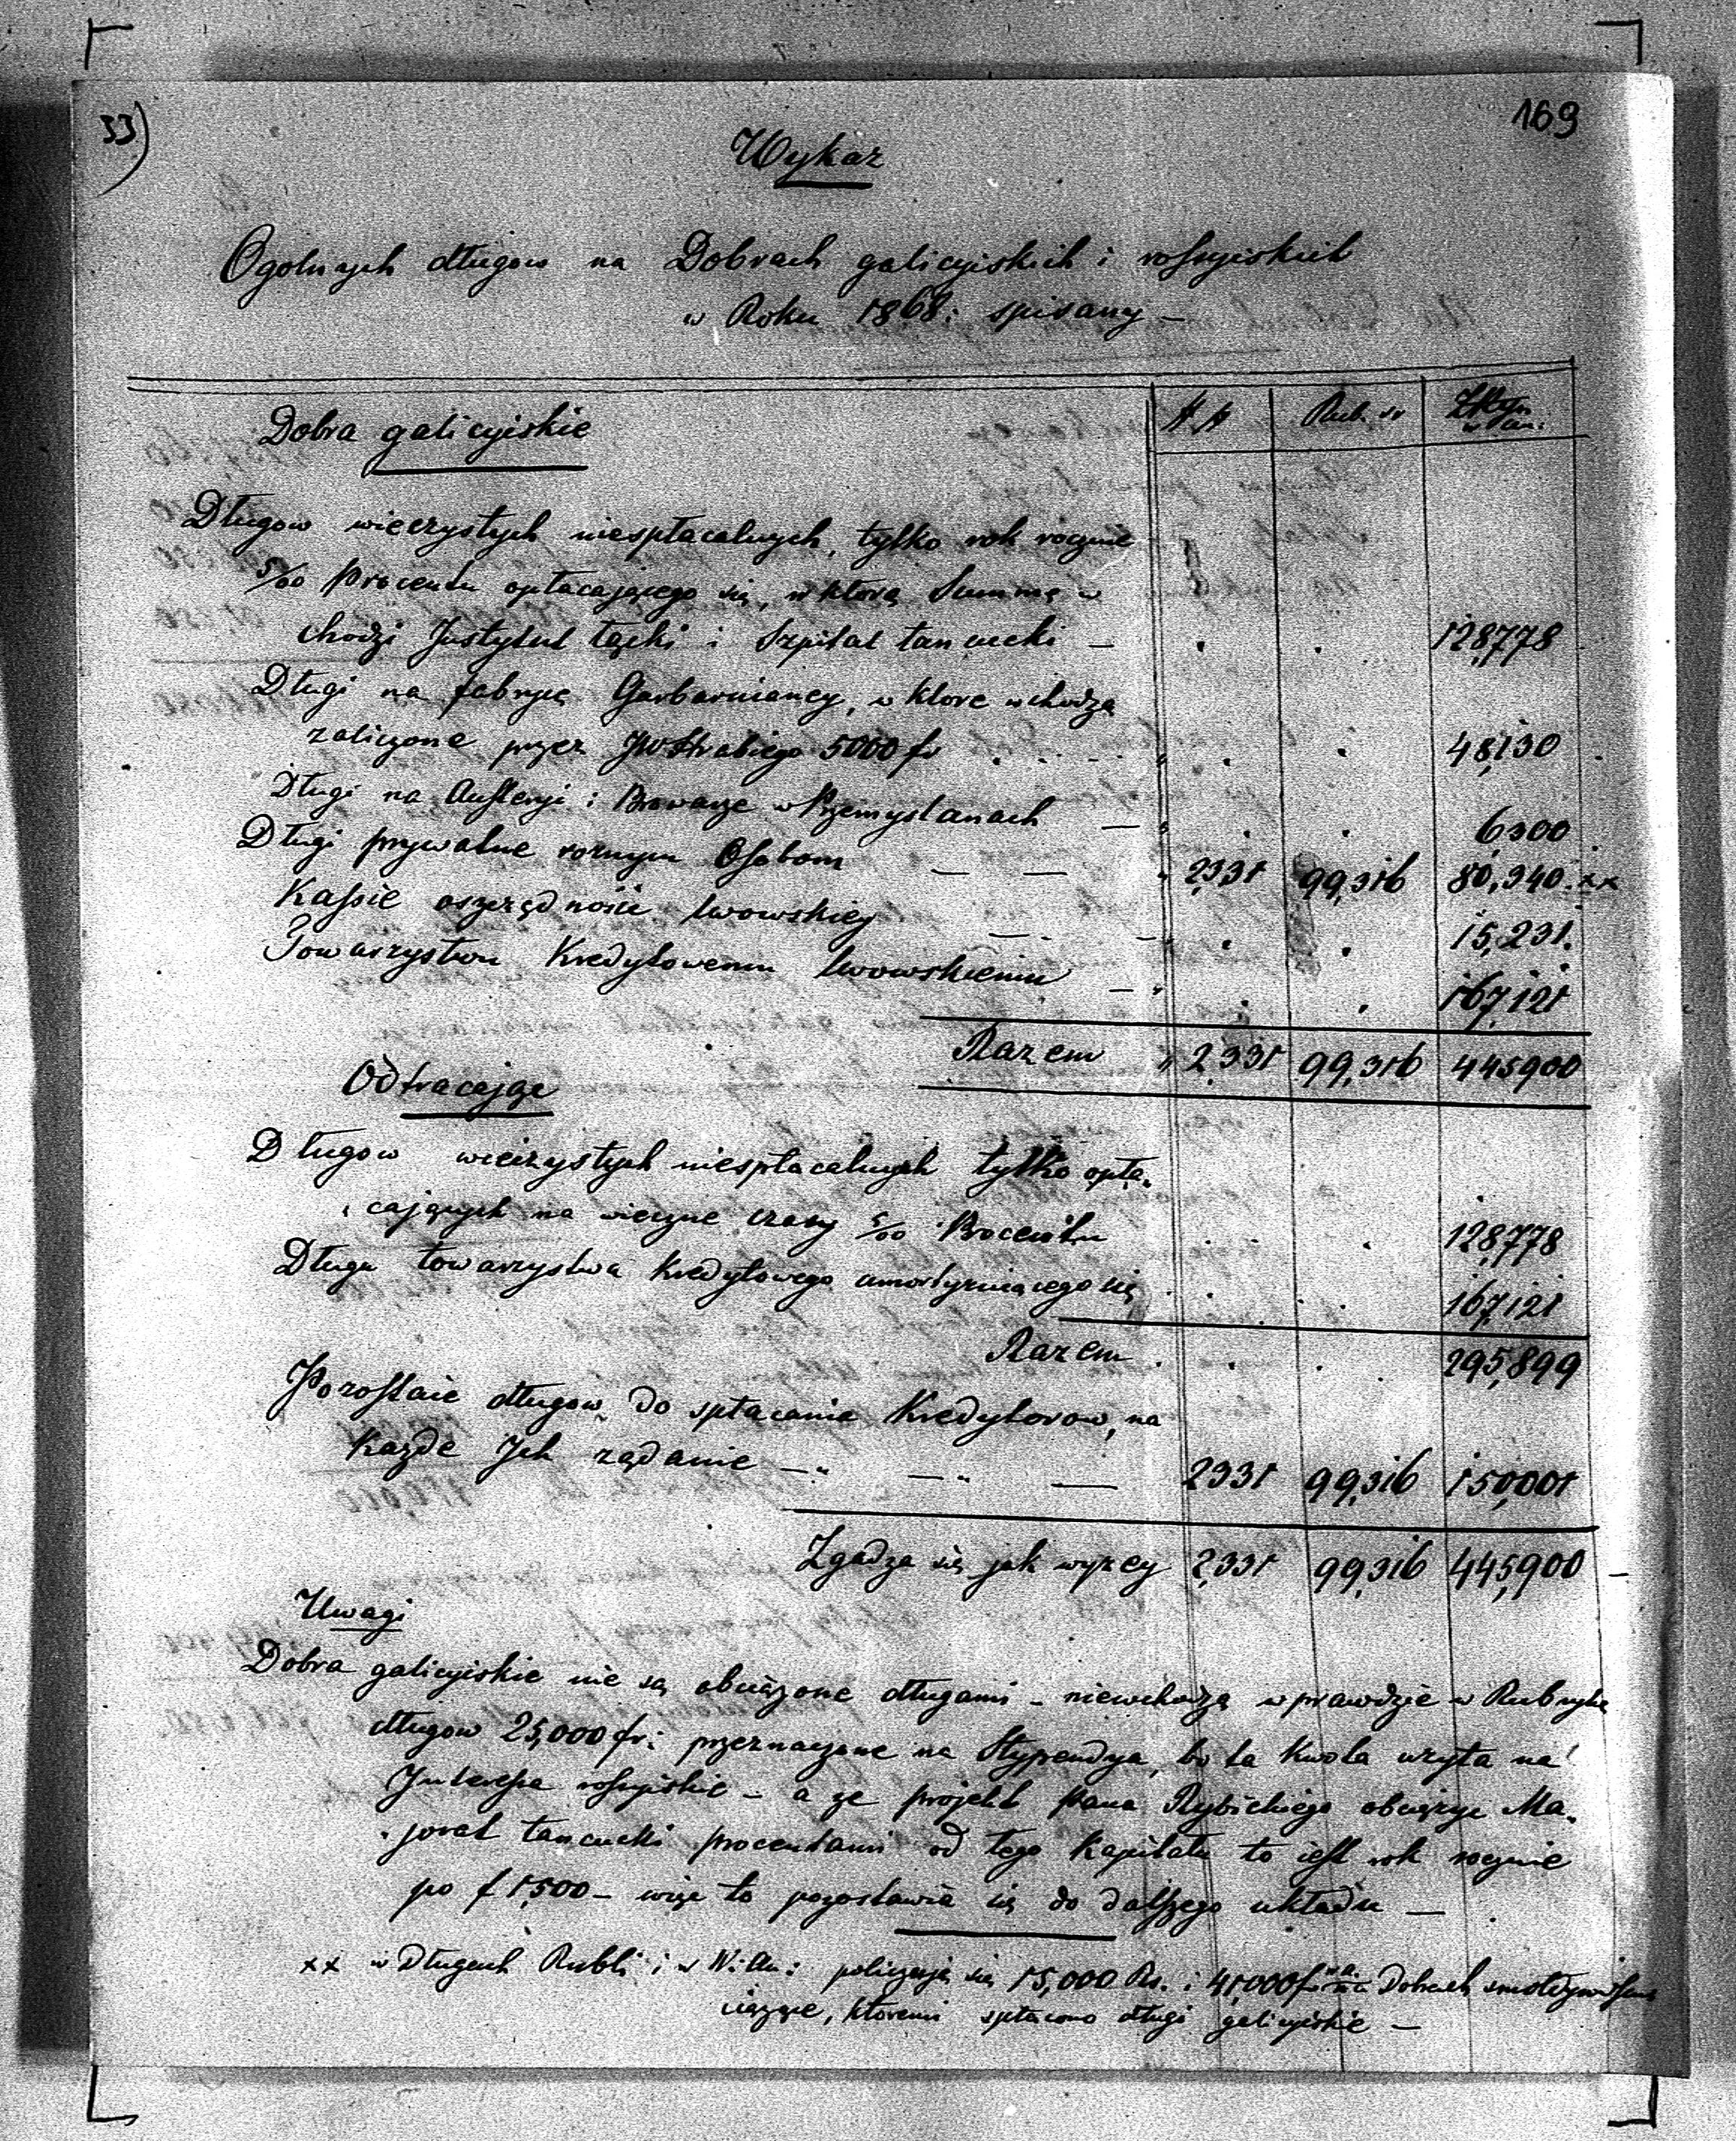 33)
169
Wykaz
Ogolnych długow na Dobrach galicyiskich i rossyiskich
w Roku 1868: spisany —
Dobra galicyiskie
# # Rub. sr
Długow wieczystych niespłacalnych, tylko rok rocznie
5/00 Procentu opłacającego się, w ktorą Summę w
chodzi Instytut łącki i Szpital łancucki — . . 128,778
Długi na fabryce Garbarnianey, w ktore wchodzą
zaliczone przez JW Hrabiego 5000 fr . . 48,130
Długi na Austeryi i Browarze w Przemyslanach — . . 6,300
Długi prywatne roznym Osobom — — 2331 99,316 80,340 xx
Kassie oszczędności lwowskiey — . . 15,231.
Towarzystwu Kredytowemu lwowskiemu — . . 167,121
Razem 2,331 99,316 445900
Odtracając
Długow wieczystych niespłacalnych tylko opła-
cających na wieczne czasy 5/00 Procentu . . 128,778
Długu towarzystwa Kredytowego amortyzuiącego się . . 167,121
Razem . . 295,899
Pozostaie długow do spłacania Kredytorow, na
Kazde Jch rządanie — — — 2331 99,316 150,001
Zgadza się jak wyzey 2,331 99,316 445,900 —
Uwagi
Dobra galicyiskie nie są obciązone długami – niewchodzą wprawdzie w Rubrykę
długow 25,000 fr: przeznaczone na Stypendya, bo ta Kwota uzyta na
Interessa rossyiskie – a ze projekt Pana Rybickiego obciąza Ma-
jorat łancucki procentami od tego Kapitału to iest rok rocznie
po f 1,500 – więc to pozostawia się do dalszego układu —
xx w Długach Rubli i w W: Au: policzają się 15,000 Rs. i 41,000 f na Dobrach
ciązące, ktoremi spłacono długi galicyiskie —